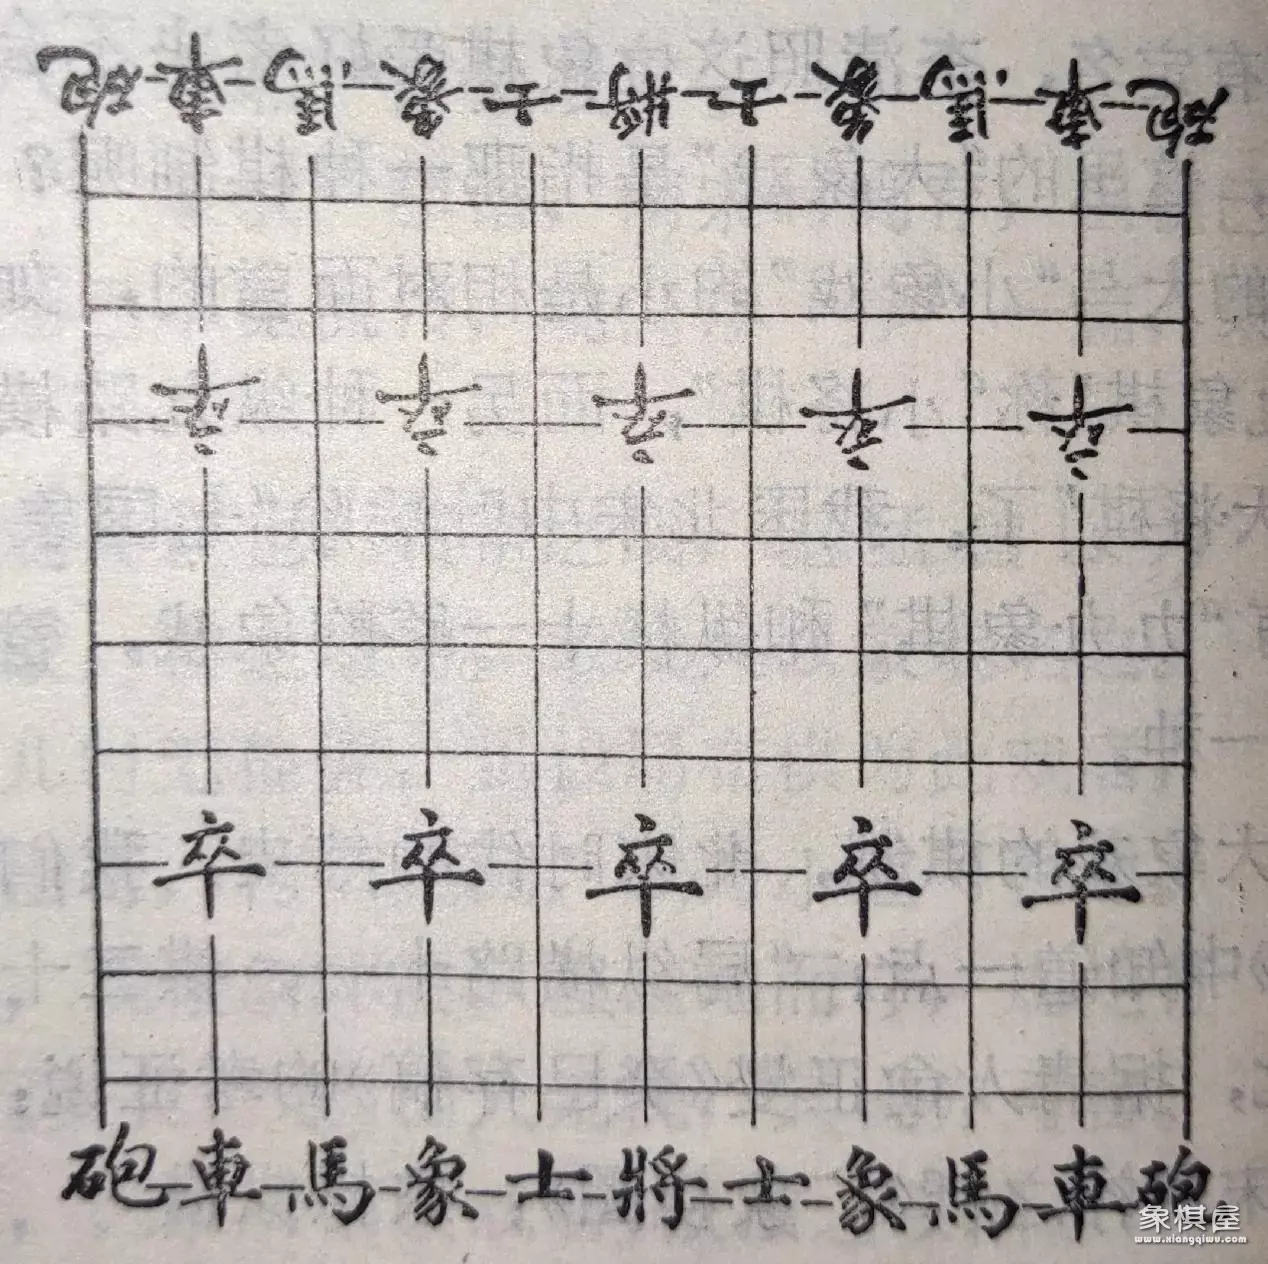 砲車馬象士將士象馬車砲
卒卒卒卒卒
卒卒卒卒卒
砲車馬象士將士象馬車砲
象棋屋
www.xiangqiwu.com